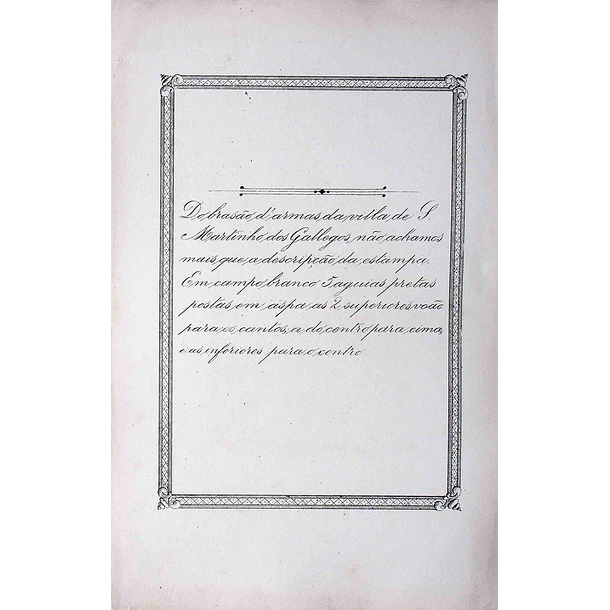 Do brasão d'armas da villa de S.
Martinho dos Gallegos, não achamos
mais que a descripção da estampa.
Em campo branco 5 aguias pretas
postas em aspa as 2 superiores voão
para os cantos, a do centro para cima,
e as inferiores para o centro